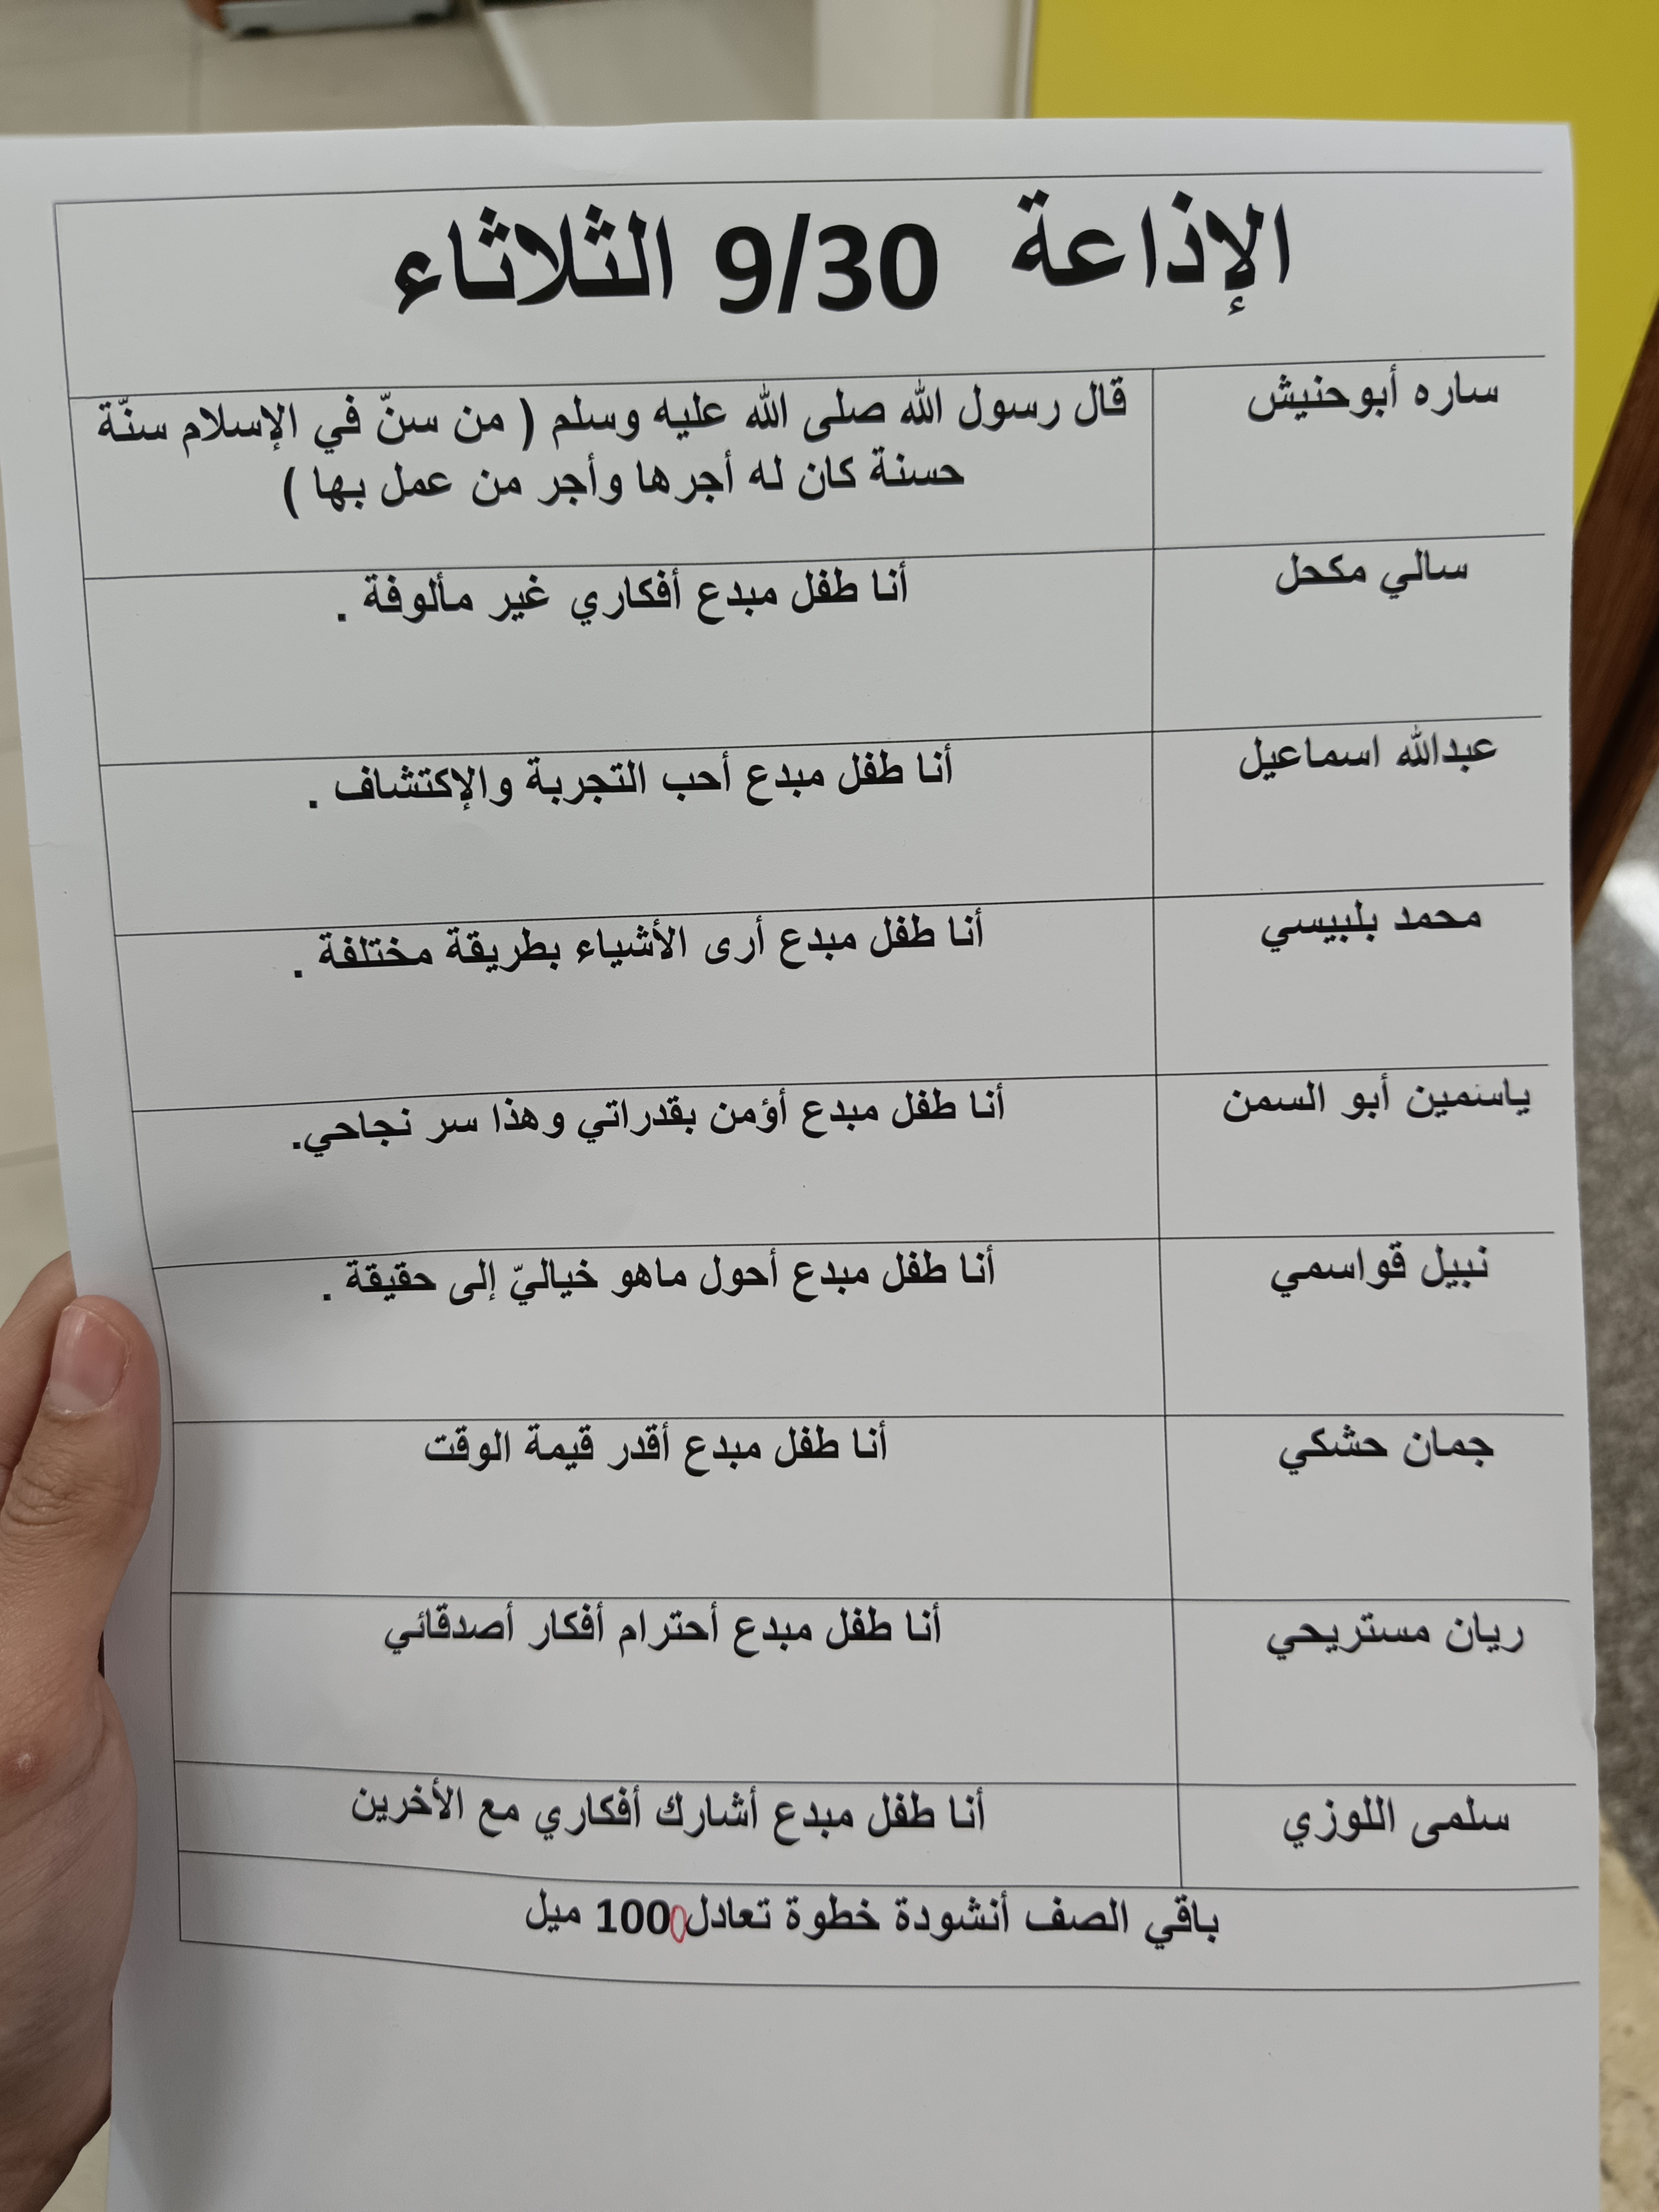 الإذاعة 9/30 الثلاثاء
ساره أبوحنيش
قال رسول الله صلى الله عليه وسلم ( من سنّ في الإسلام سنّة
حسنة كان له أجرها وأجر من عمل بها )
سالي مكحل
أنا طفل مبدع أفكاري غير مألوفة .
عبدالله اسماعيل
أنا طفل مبدع أحب التجربة والإكتشاف .
محمد بلبيسي
أنا طفل مبدع أرى الأشياء بطريقة مختلفة .
ياسمين أبو السمن
أنا طفل مبدع أؤمن بقدراتي وهذا سر نجاحي.
نبيل قواسمي
أنا طفل مبدع أحول ماهو خياليّ إلى حقيقة .
جمان حشكي
أنا طفل مبدع أقدر قيمة الوقت
ريان مستريحي
أنا طفل مبدع أحترام أفكار أصدقائي
سلمى اللوزي
أنا طفل مبدع أشارك أفكاري مع الأخرين
باقي الصف أنشودة خطوة تعادل1000 ميل